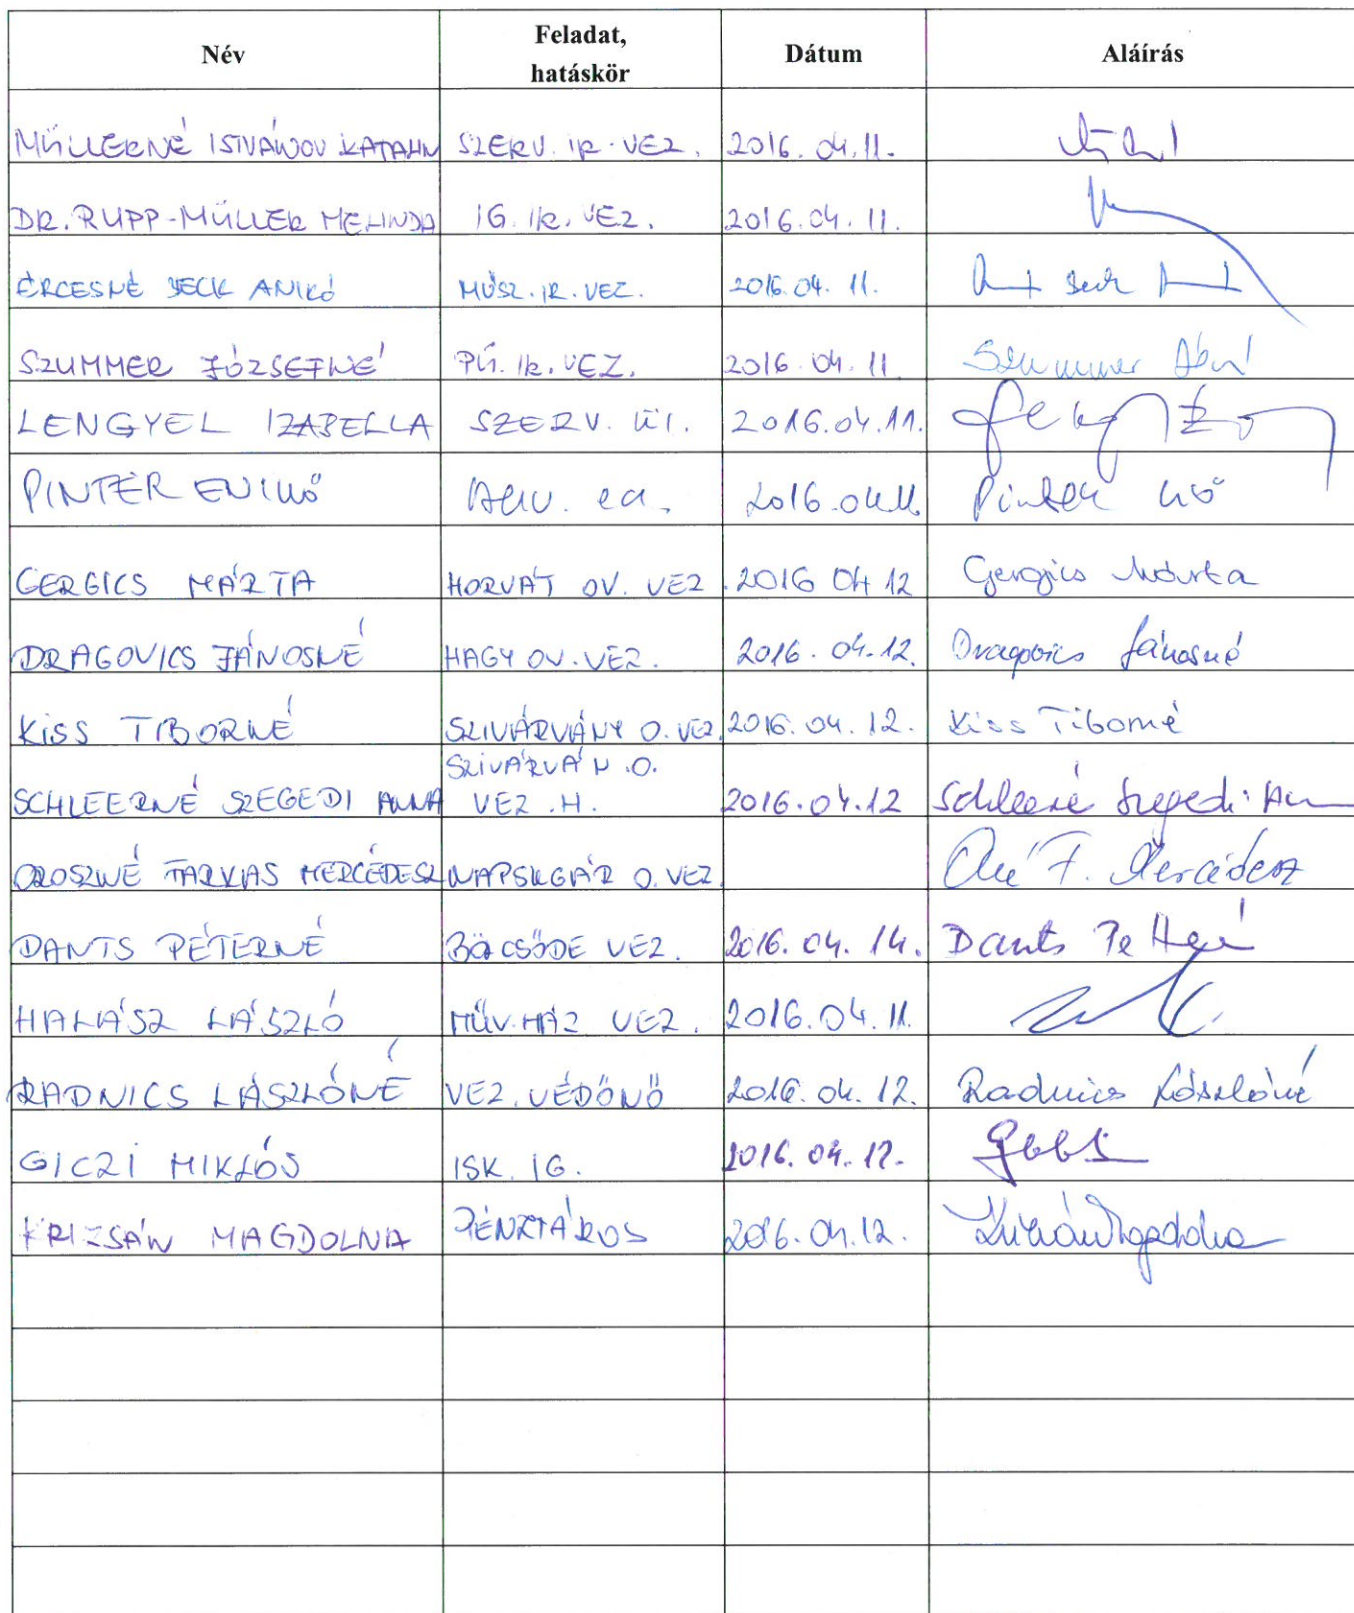 Név Feladat, hatáskör Dátum Aláírás
MÜLLERNÉ ISTVÁNOV KATALIN SZERV. IR. VEZ. 2016. 04. 11.
DR. RUPP-MÜLLER MELINDA IG. IR. VEZ. 2016. 04. 11.
ÉRCESNÉ BECK ANIKÓ MŰSZ. IR. VEZ. 2016. 04. 11.
SZUMMER JÓZSEFNÉ PÜ. IR. VEZ. 2016. 04. 11 Szummer
LENGYEL IZABELLA SZERV. ÜI. 2016.04.11.
PINTÉR ENIKŐ ea. 2016.04.11. Pintér
GERGICS MÁRTA HORVÁT OV. VEZ. 2016 04 12 Gergics Márta
DRAGOVICS JÁNOSNÉ NAGY OV. VEZ. 2016. 04. 12. Dragovics Jánosné
KISS TIBORNÉ SZIVÁRVÁNY O. VEZ. 2016. 04. 12. Kiss Tiborné
SCHLEERNÉ SZEGEDI ANNA SZIVÁRVÁN. O.
VEZ. H. 2016. 04. 12 Schleerné Szegedi
OROSZNÉ FARKAS MERCÉDESZ NAPSUGÁR O. VEZ. F. Mercédesz
DANTS PÉTERNÉ BÖLCSŐDE VEZ. 2016. 04. 14. Dants Péterné
HALÁSZ LÁSZLÓ MŰV. HÁZ VEZ. 2016. 04. 11.
RADNICS LÁSZLÓNÉ VEZ. VÉDŐNŐ 2016. 04. 12. Radnics Lászlóné
GICZI MIKLÓS ISK. IG. 2016. 04. 12.
KRIZSÁN MAGDOLNA PÉNZTÁROS 2016. 04. 12. Krizsán Magdolna